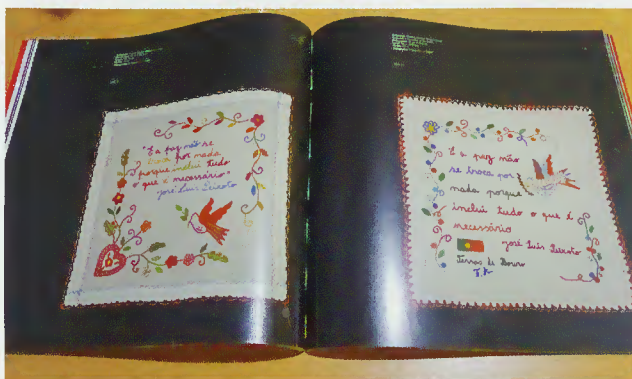 "E a paz não se
troca por nada
porque inclui tudo
o que é necessário"
José Luís Peixoto
E a paz não
se troca por
nada porque
inclui tudo o que é
necessário
José Luís Peixoto
Terras de Bouro